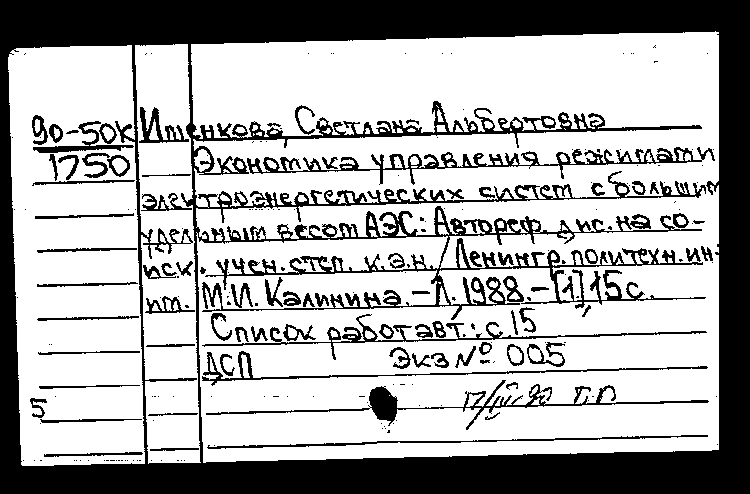 90-50к Именкова, Светлана Альбертовна
1750 Экономика управления режимами
электроэнергетических систем с большим
удельным весом АЭС: Автореф. дис. на со-
иск. учен. степ. к.э.н. / Ленингр. политехн. ин-
М.И. Калинина. – Л., 1988. – [1], 15 с.
Список работ авт.: с. 15
ДСП Экз № 005
5 17/IV-90 П.П